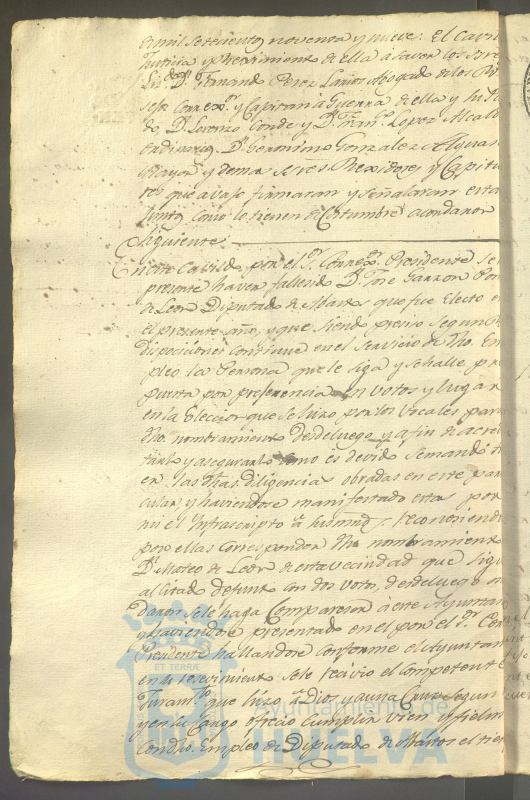 de mil setecientos noventa y nueve: El Cavil
Justicia y Reximiento de ella á saver los Sres
Lizdo. Dn. Fernando Perez Larios Abogado de los Rs
Correxr. y Capitan á Guerra de ella y su
do, Dn. Lorenzo Conde y Dn. Franco. Lopez Alcal
Ordinarios Dn. Geronimo Gonzalez Alguas
Mayor y demas Sres. Rexidores y Capitu
res que avaxo firmaran y señalaran esta
Juntos como lo tienen de Costumbre acordaron
Siguiente
En este Cavildo por el Sr. Correxr. Presidente se
presente haver fallecido Dn. Jose Garzon Pon
de Leon Diputado de Abastos que fue electo en
el presente año, y que siendo preciso segun R
disposiciones continue en el servicio de dho. Em
pleo la Persona que le siga y se halle pr
puesta por preferencia en votos y lugar
en la Eleccion que se hizo por los Vocales para
dho. nombramiento desde luego y a fin de acre
tarlo y asegurarlo como es devido se mandó
en las dhas. diligencias obradas en este par
cular, y haviendose manifestado estas por
mi el Infrascripto Reconosiendo
por ellas corresponder dho. nombramiento
Dn. Mateo de Leon de esta vecindad que sigu
al citado defunto con dos votos, desde luego
daron se le haga comparecer a este Ayuntam
y haviendose presentado en el por el Sr. Corr
Presidente hallandose conforme el Ayuntam
en su resevimiento se le recivio el competente
Juramto. que hizo á Dios y a una Cruz segun
y en su cargo ofrecio cumplir vien y fielm
con dho. Empleo de Diputado de Abastos el tiem
ET TERRÆ
Ayuntamiento de
HUELVA